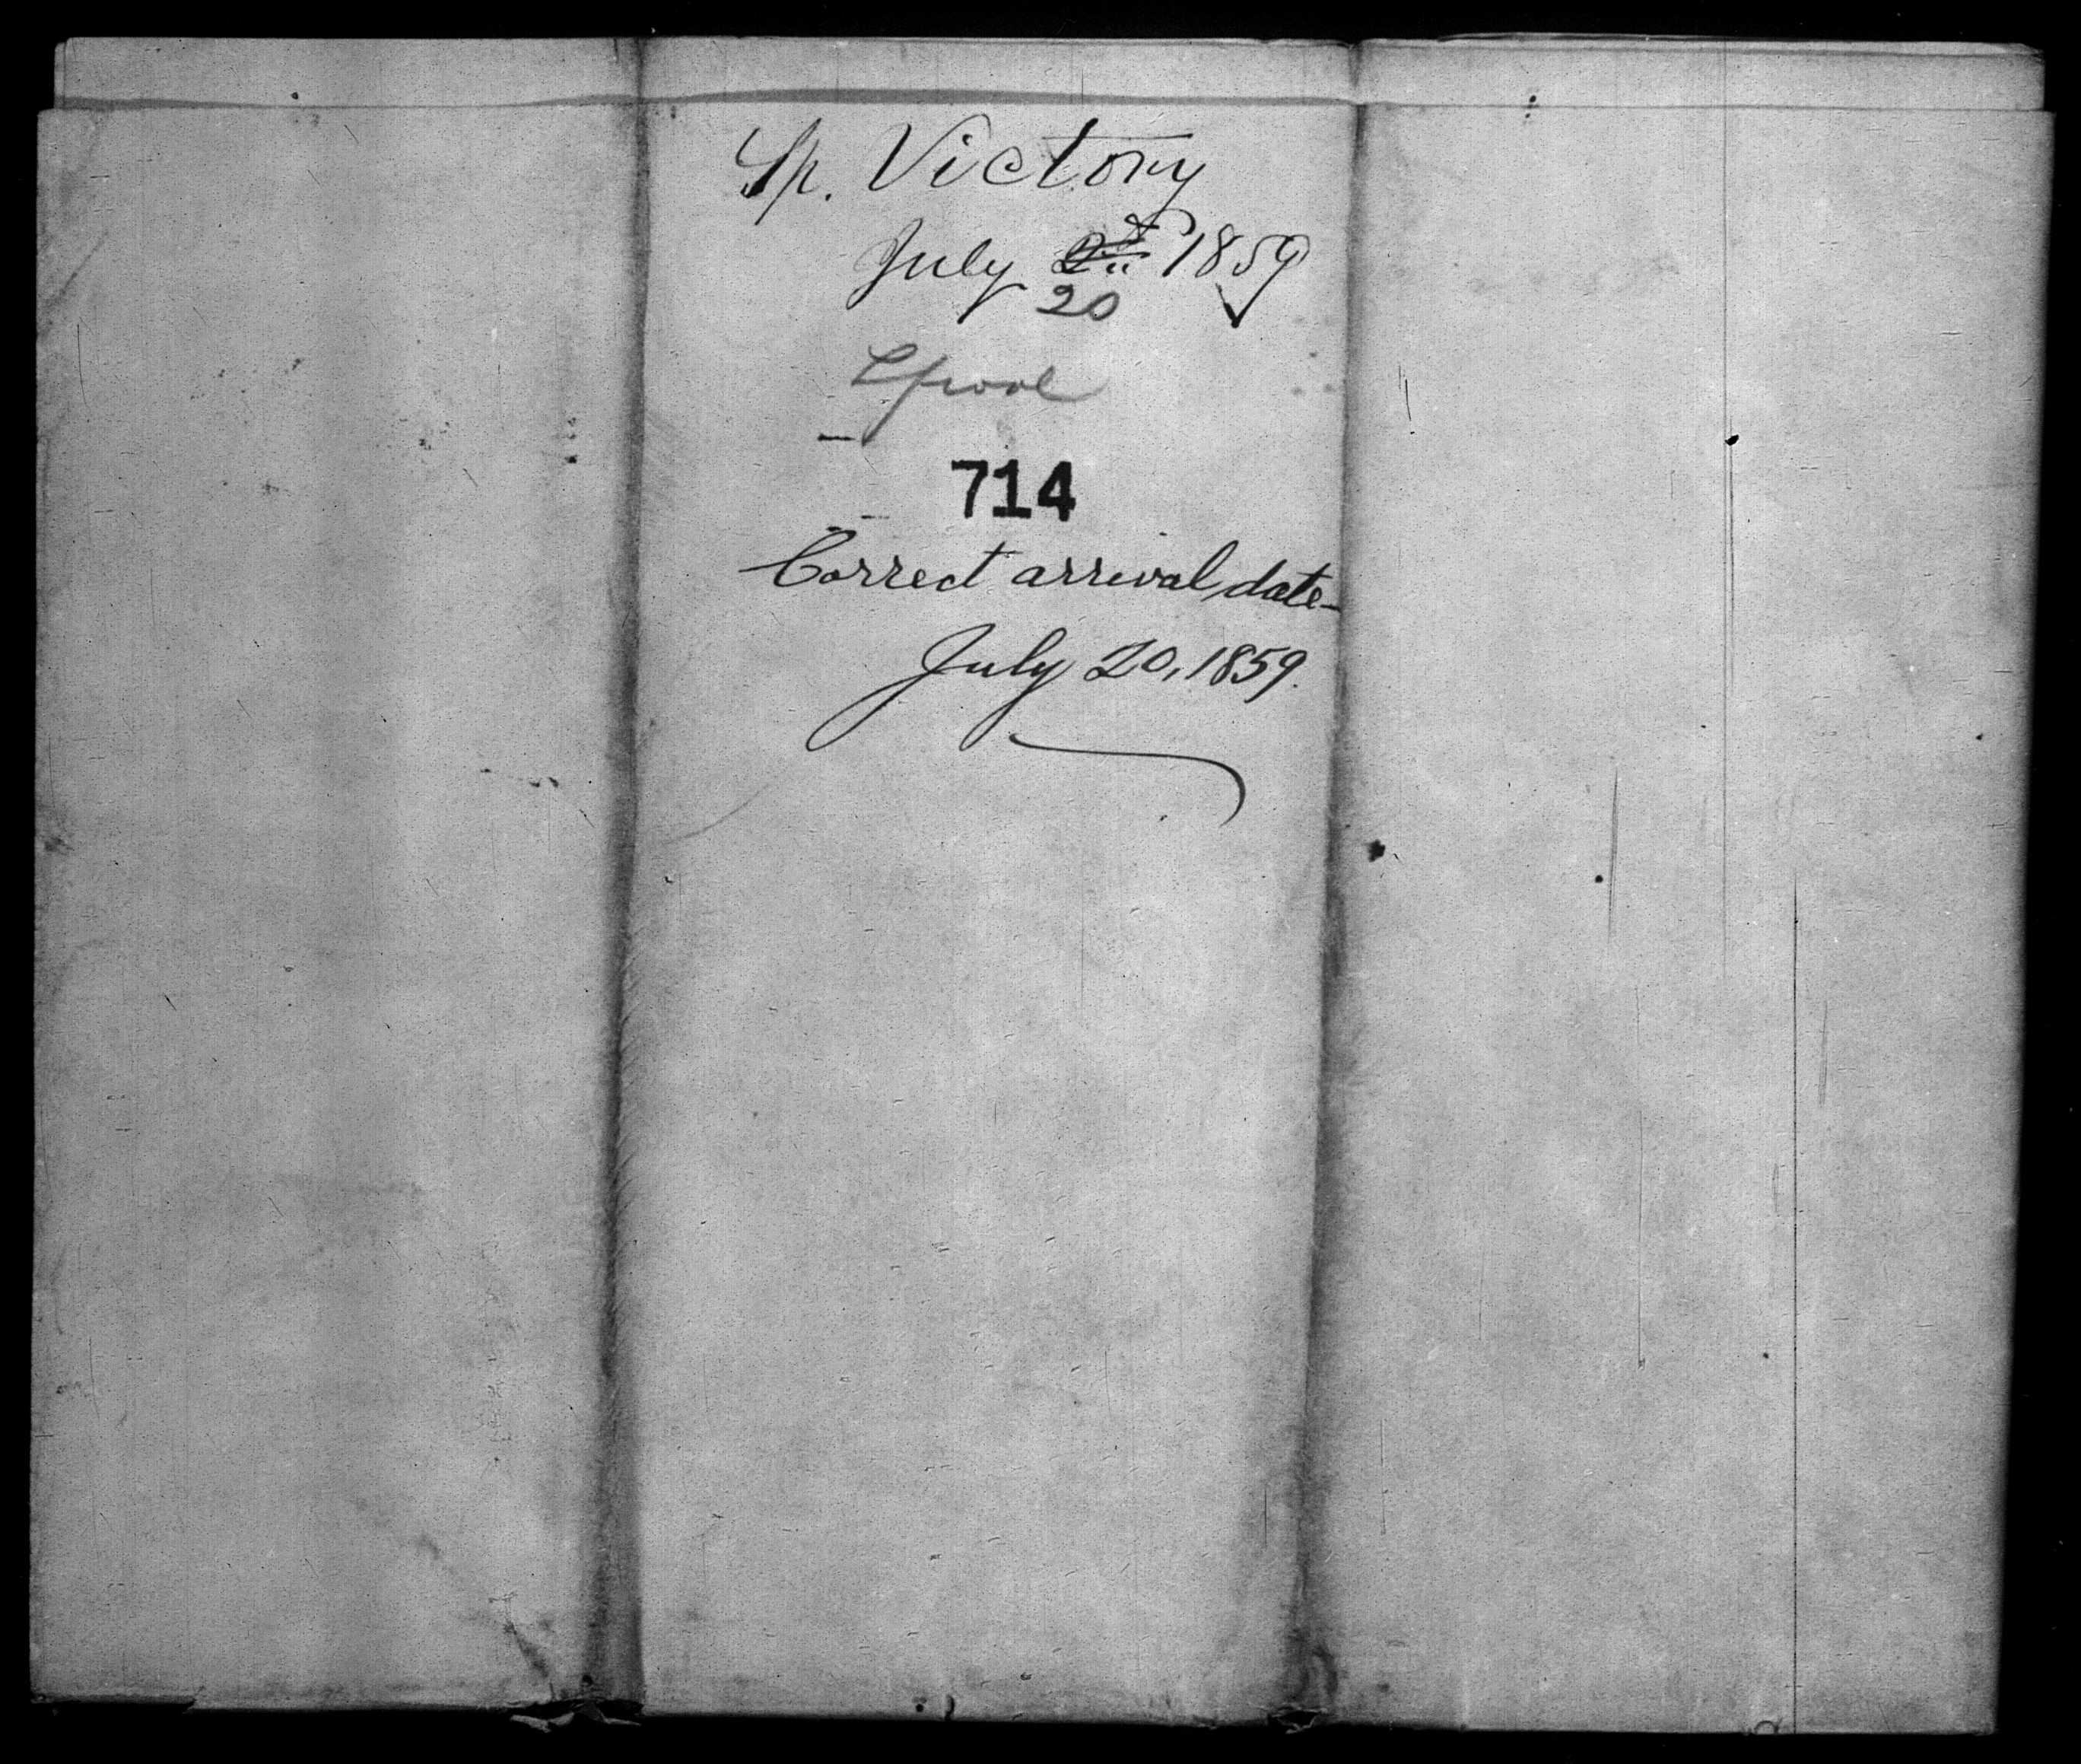 Sp. Victory
July 2d 1859
20
Lpool
714
Correct arrival date-
July 20, 1859.